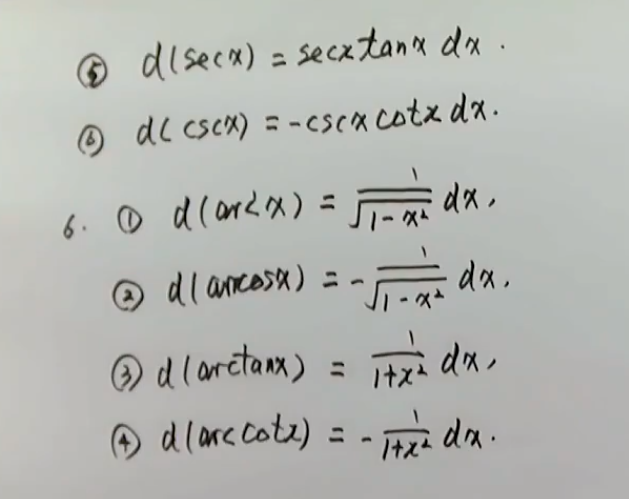 ⑤ d(secx) = secx tanx dx.
⑥ d(cscx) = -cscx cotx dx.
6. ① d(arc x) = 1/√(1-x²) dx,
② d(arccosx) = -1/√(1-x²) dx,
③ d(arctanx) = 1/(1+x²) dx,
④ d(arccotx) = -1/(1+x²) dx.